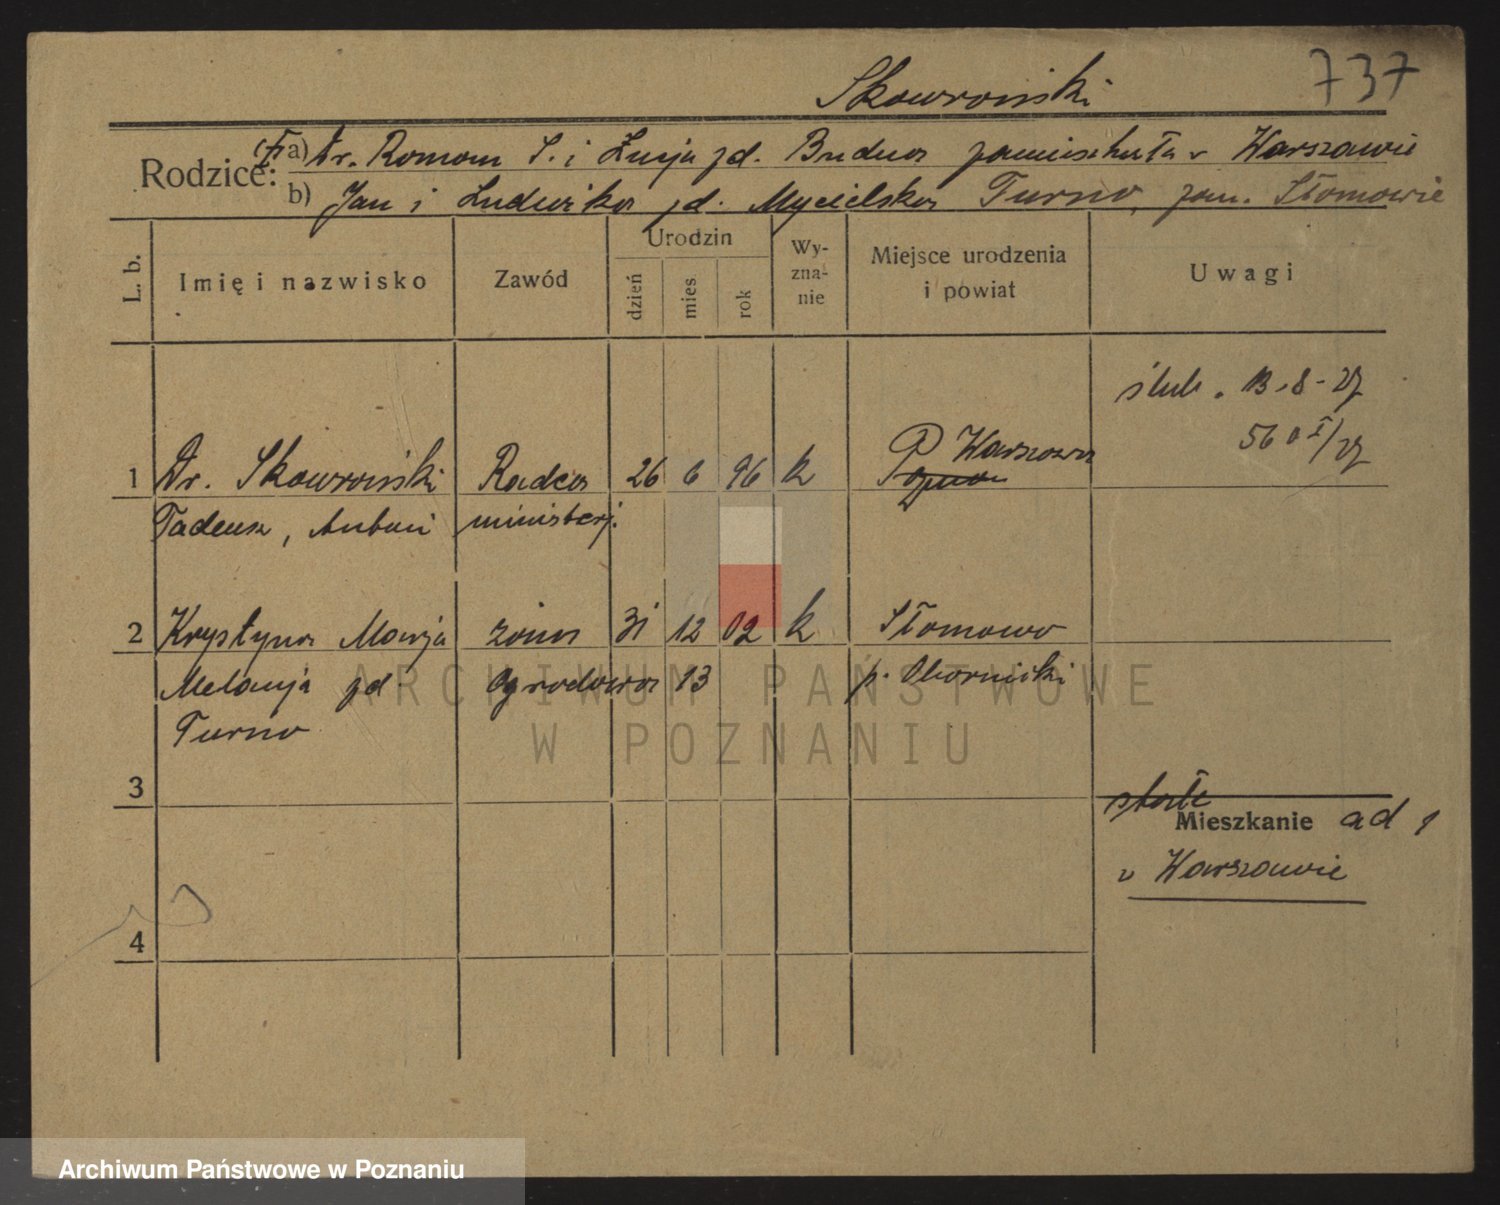 Skowroński 737
Rodzice: a) Dr. Roman S. i Łucja zd. Budna zamieszkała w Warszawie
b) Jan i Ludwika zd. Mycielska Turno, zam. Słomowie
L. b.
Imię i nazwisko
Zawód
Urodzin
dzień
mies
rok
Wyzna-
nie
Miejsce urodzenia
i powiat
Uwagi
ślub. 13.-8-27
56 I/27
1 Dr. Skowroński Radca 26 6 96 k Warszawa
Tadeusz, Antoni ministerj.
2 Krystyna Marja żona 31 12 02 k Słomowo
Melanja zd. Ogrodowa 13 p. Obornicki
Turno
3
stałe
Mieszkanie ad 1
w Warszawie
4
ARCHIWUM PAŃSTWOWE
W POZNANIU
Archiwum Państwowe w Poznaniu